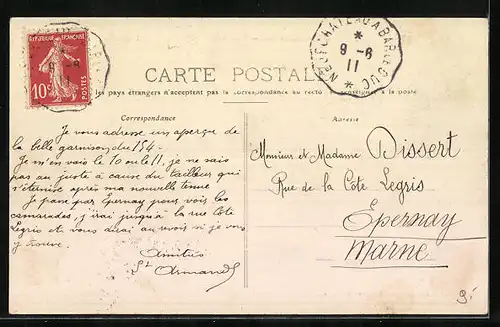 REPUBLIQUE FRANÇAISE
10c POSTES
NEUFCHATEAU A BAR LE DUC
9-6
11
CARTE POSTALE
les pays étrangers n'acceptent pas la correspondance au recto
à la poste
Correspondance
Adresse
Je vous adresse un aperçu de
la belle garnison du 154-
Je m'en vais le 10 ou le 11, je ne sais
pas au juste à cause du tailleur qui
s'éternise après ma nouvelle tenue
Je passe par Epernay pour voir les
camarades, j'irai jusqu'à la rue Côte
Legris et vous dirai au revoir si je vous
y trouve.
Amitiés
St Armand
Monsieur et Madame Dissert
Rue de la Côte Legris
Épernay
Marne
9.-